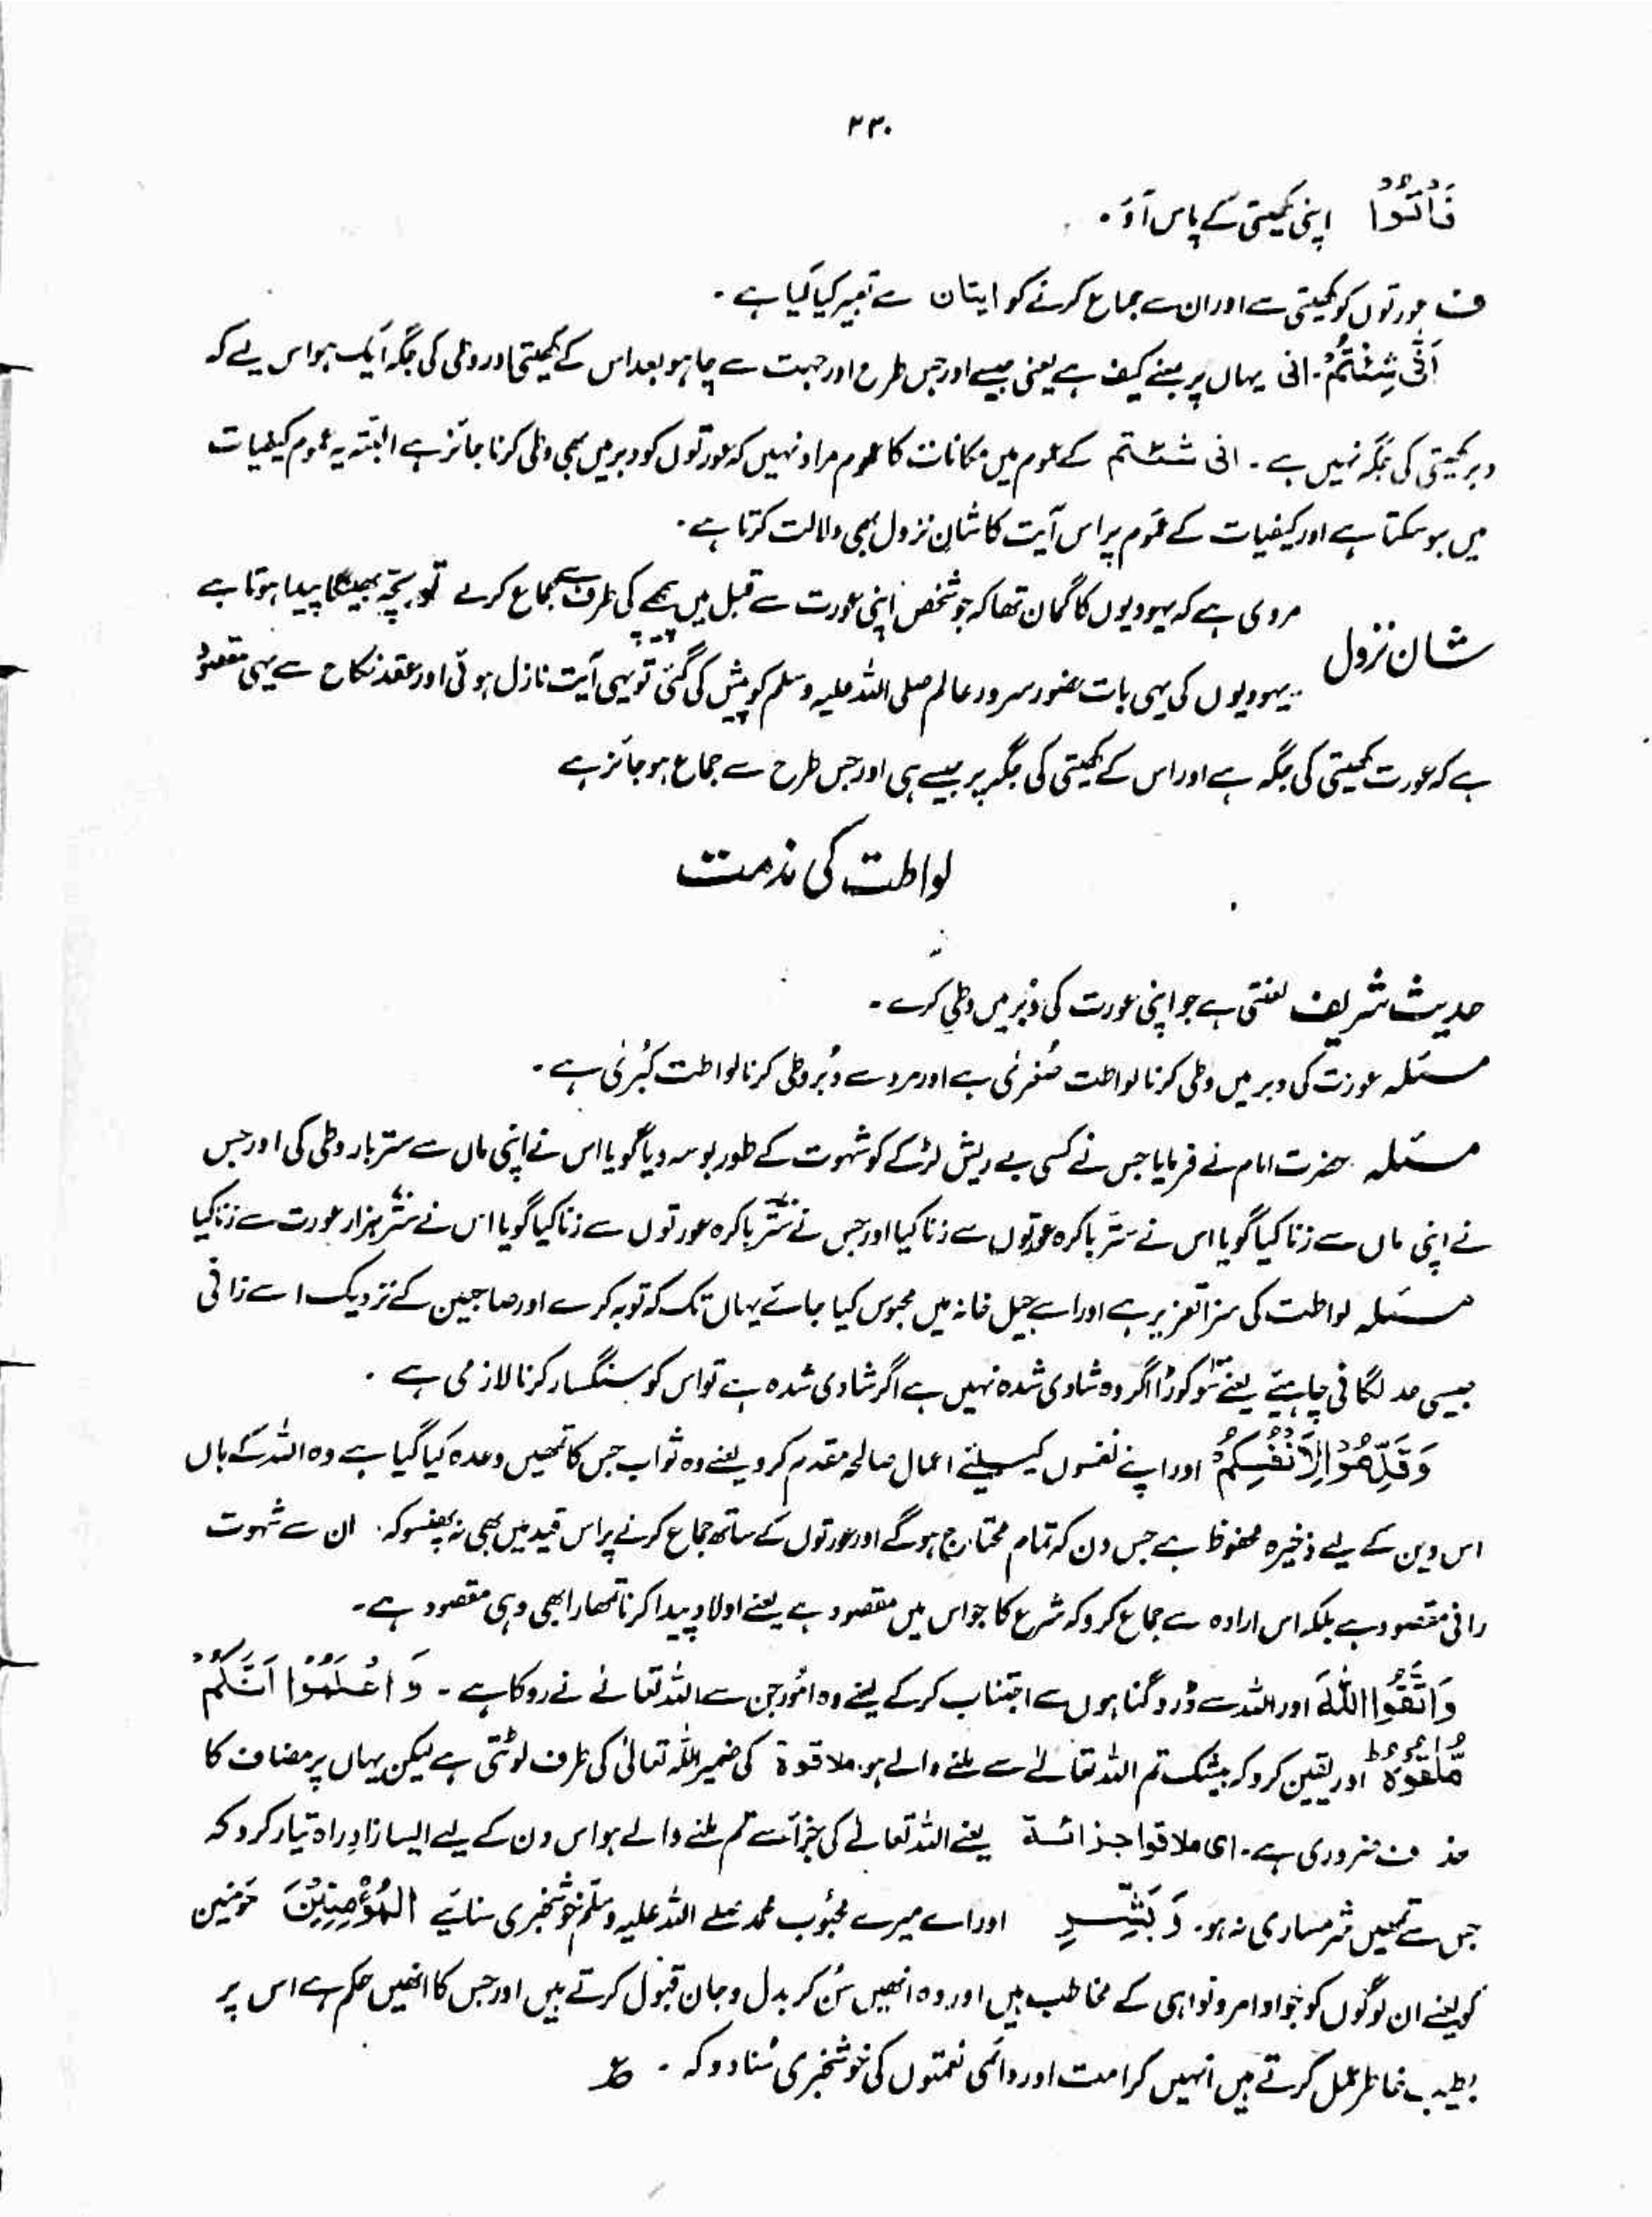 ۲۳۰
فَأْتُوْا اپنی کھیتی کے پاس آؤ۔
ف عورتوں کو کھیتی سے اور ان سے جماع کرنے کو ایتان سے تعبیر کیا گیا ہے۔
اَنّٰى شِئْتُمْ۔ انی یہاں پر بمعنے کیف ہے یعنی جیسے اور جس طرح اور جہت سے چاہو بعد اس کے کھیتی اور وطی کی جگہ ایک ہو اس لیے کہ
دبر کھیتی کی جگہ نہیں ہے۔ انی شئتم کے عموم میں مکانات کا عموم مراد نہیں کہ عورتوں کو دبر میں بھی وطی کرنا جائز ہے البتہ یہ عموم کیفیات
میں ہو سکتا ہے اور کیفیات کے عموم پر اس آیت کا شان نزول بھی دلالت کرتا ہے۔
شان نزول مروی ہے کہ یہودیوں کا گمان تھا کہ جو شخص اپنی عورت سے قبل میں پیچھے کی طرف سے جماع کرے تو بچّہ بھینگا پیدا ہوتا ہے
یہودیوں کی یہی بات حضور سرور عالم صلی اللہ علیہ وسلم کو پیش کی گئی تو یہی آیت نازل ہوئی اور عقد نکاح سے یہی مقصود
ہے کہ عورت کھیتی کی جگہ ہے اور اس کے کھیتی کی جگہ پر جیسے ہی اور جس طرح سے جماع ہو جائز ہے
لواطت کی مذمت
حدیث شریف لعنتی ہے جو اپنی عورت کی دُبر میں وطی کرے۔
مسئلہ عورت کی دبر میں وطی کرنا لواطت صُغریٰ ہے اور مرد سے دُبر وطی کرنا لواطت کُبریٰ ہے۔
مسئلہ حضرت امام نے فرمایا جس نے کسی بے ریش لڑکے کو شہوت کے طور بوسہ دیا گویا اس نے اپنی ماں سے ستر بار وطی کی اور جس
نے اپنی ماں سے زنا کیا گویا اس نے ستّر باکرہ عورتوں سے زنا کیا اور جس نے ستّر باکرہ عورتوں سے زنا کیا گویا اس نے ستّر ہزار عورت سے زنا کیا
مسئلہ لواطت کی سزا تعزیر ہے اور اسے جیل خانہ میں محبوس کیا جائے یہاں تک کہ توبہ کرے اور صاحبین کے نزدیک اسے زانی
جیسی حد لگانی چاہیئے یعنے سَو کوڑا اگر وہ شادی شدہ نہیں ہے اگر شادی شدہ ہے تو اس کو سنگسار کرنا لازمی ہے۔
وَقَدِّمُوْا لِاَنْفُسِكُمْ اور اپنے نفسوں کیلئے اعمال صالحہ مقدم کرو یعنے وہ ثواب جس کا تمھیں وعدہ کیا گیا ہے وہ اللہ کے ہاں
اس دین کے لیے ذخیرہ محفوظ ہے جس دن کہ تمام محتاج ہو گے اور عورتوں کے ساتھ جماع کرنے پر اس قید میں بھی نہ پھنسو کہ ان سے شہوت
رانی مقصود ہے بلکہ اس ارادہ سے جماع کرو کہ شرع کا جو اس میں مقصود ہے یعنے اولاد پیدا کرنا تمھارا بھی وہی مقصود ہے۔
وَاتَّقُوا اللّٰهَ اور اللہ سے ڈرو گناہوں سے اجتناب کر کے یعنے وہ امُور جن سے اللہ تعالےٰ نے روکا ہے۔ وَاعْلَمُوْا اَنَّكُمْ
مُّلٰقُوْهُ ؕ اور یقین کرو کہ بیشک تم اللہ تعالےٰ سے ملنے والے ہو۔ ملاقوۃ کی ضمیر اللہ تعالیٰ کی طرف لوٹتی ہے لیکن یہاں پر مضاف کا
حذف ضروری ہے۔ ای ملاقوا جزائہ یعنے اللہ تعالےٰ کی جزاؤ سے تم ملنے والے ہو اس دن کے لیے ایسا زادِ راہ تیار کرو کہ
جس سے تمہیں شرمساری نہ ہو۔ وَبَشِّرِ اور اے میرے محبُوب محمد صلے اللہ علیہ وسلّم خوشخبری سنائیے الْمُؤْمِنِيْنَ مومنین
کو یعنے ان لوگوں کو جو اوامر و نواہی کے مخاطب ہیں اور وہ انھیں سُن کر بدل و جان قبول کرتے ہیں اور جس کا انھیں حکم ہے اس پر
بطیب خاطر عمل کرتے ہیں انہیں کرامت اور دائمی نعمتوں کی خوشخبری سُنا دو کہ۔